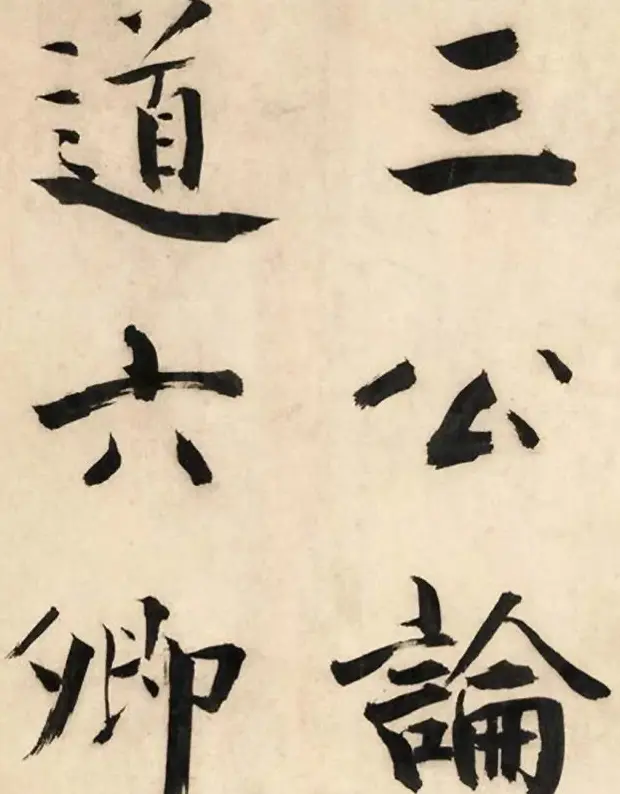 三公論
道六卿